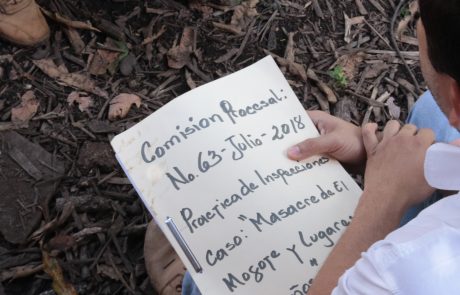 Comisión Procesal:
No. 63-Julio-2018
Practica de Inspecciones
Caso: "Masacre de El
Mozote y Lugares